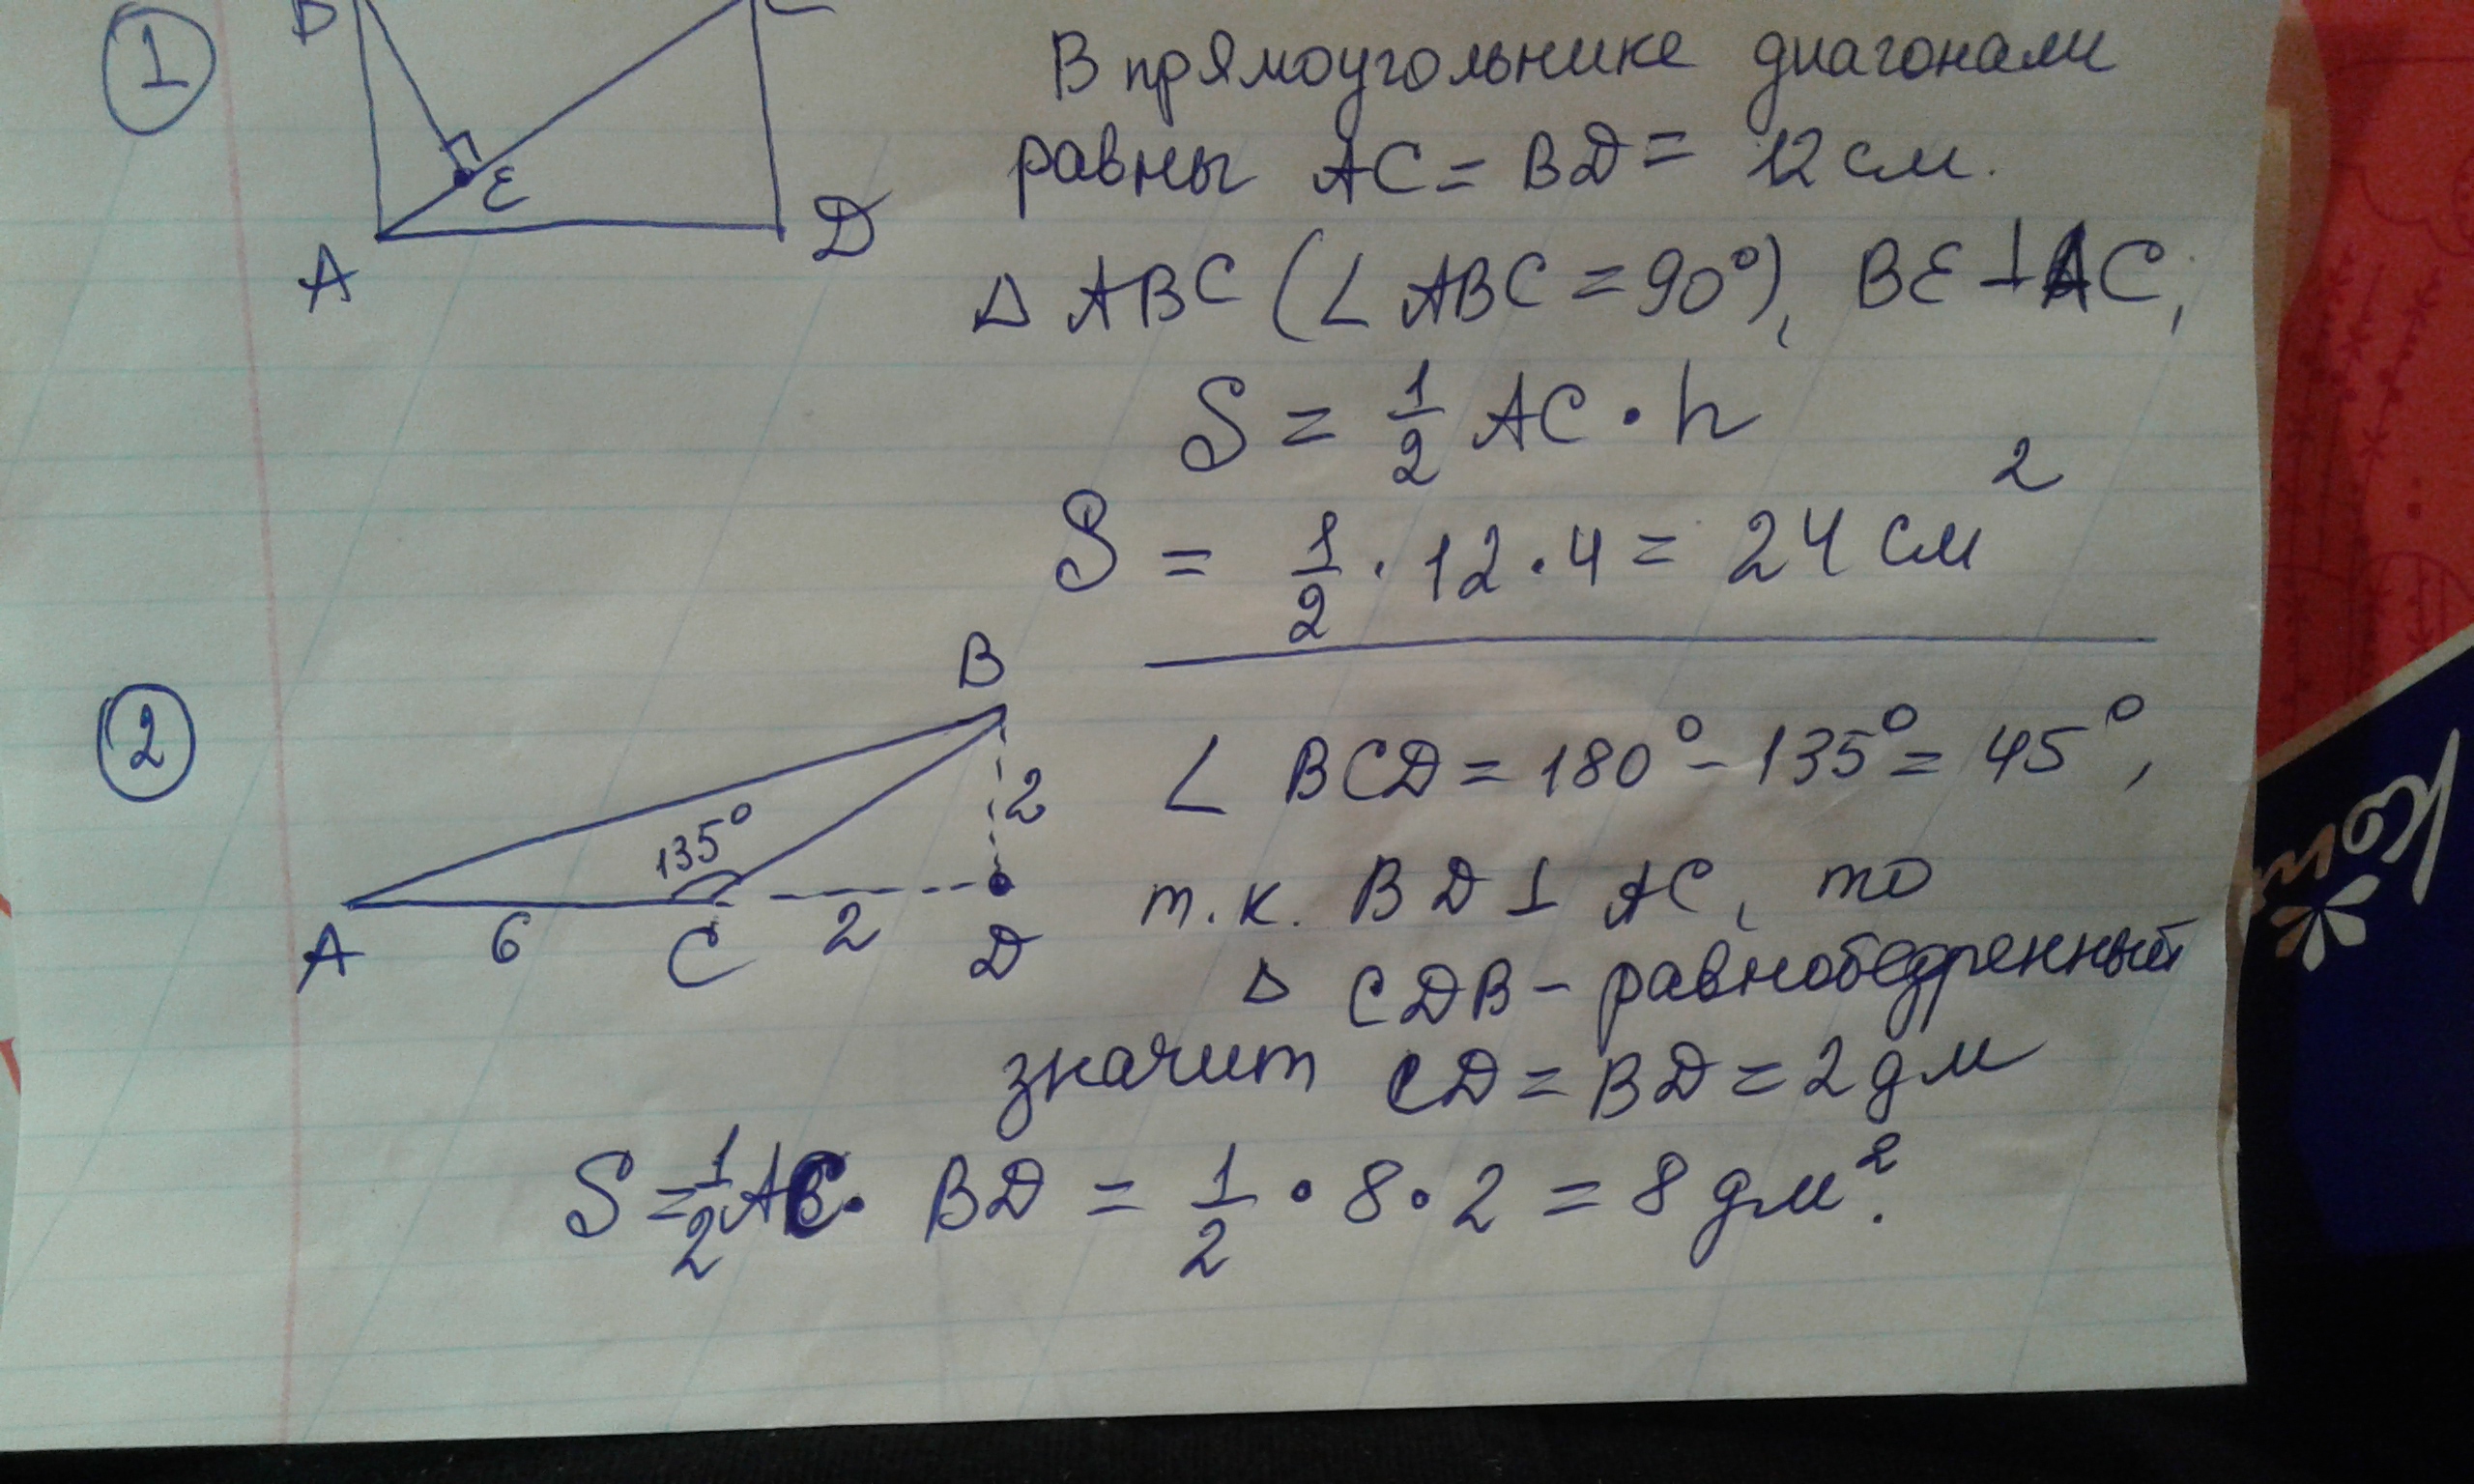 1
B
C
E
A
D
В прямоугольнике диагонали
равны AC = BD = 12 см.
△ ABC (∠ ABC = 90°), BE ⊥ AC,
S = 1/2 AC · h
S = 1/2 · 12 · 4 = 24 см²
2
B
135°
2
A
6
C
2
D
∠ BCD = 180° - 135° = 45°,
т.к. BD ⊥ AC, то
△ CDB - равнобедренный
значит CD = BD = 2 дм
S = 1/2 AC · BD = 1/2 · 8 · 2 = 8 дм².